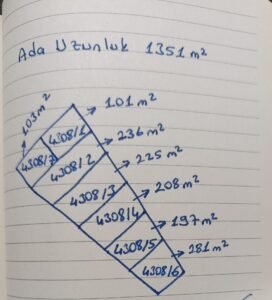 Ada Uzunluk 1351 m²
103 m²
101 m²
4308/1
236 m²
4308/7
4308/2
225 m²
4308/3
208 m²
4308/4
197 m²
4308/5
281 m²
4308/6